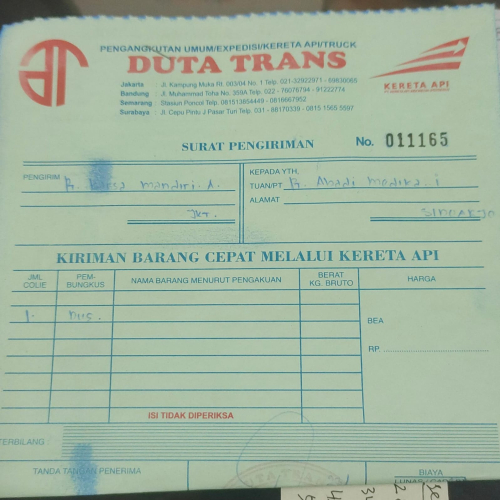 PENGANGKUTAN UMUM/EXPEDISI/KERETA API/TRUCK
DUTA TRANS
Jakarta : Jl. Kampung Muka Rt. 003/04 No. 1 Telp. 021-32922971 - 69830065
Bandung : Jl. Muhammad Toha No. 359A Telp. 022 - 76076794 - 91222774
Semarang : Stasiun Poncol Telp. 081513854449 - 0816667952
Surabaya : Jl. Cepu Pintu 2 Pasar Turi Telp. 031 - 88170339 - 0815 1965 5597
KERETA API
SURAT PENGIRIMAN
No. 011165
PENGIRIM
Mandiri. A.
JKT.
KEPADA YTH,
TUAN/PT
ALAMAT
KIRIMAN BARANG CEPAT MELALUI KERETA API
JML COLIE
PEM-BUNGKUS
NAMA BARANG MENURUT PENGAKUAN
BERAT KG. BRUTO
HARGA
1.
BEA
RP.
ISI TIDAK DIPERIKSA
TERBILANG :
TANDA TANGAN PENERIMA
BIAYA